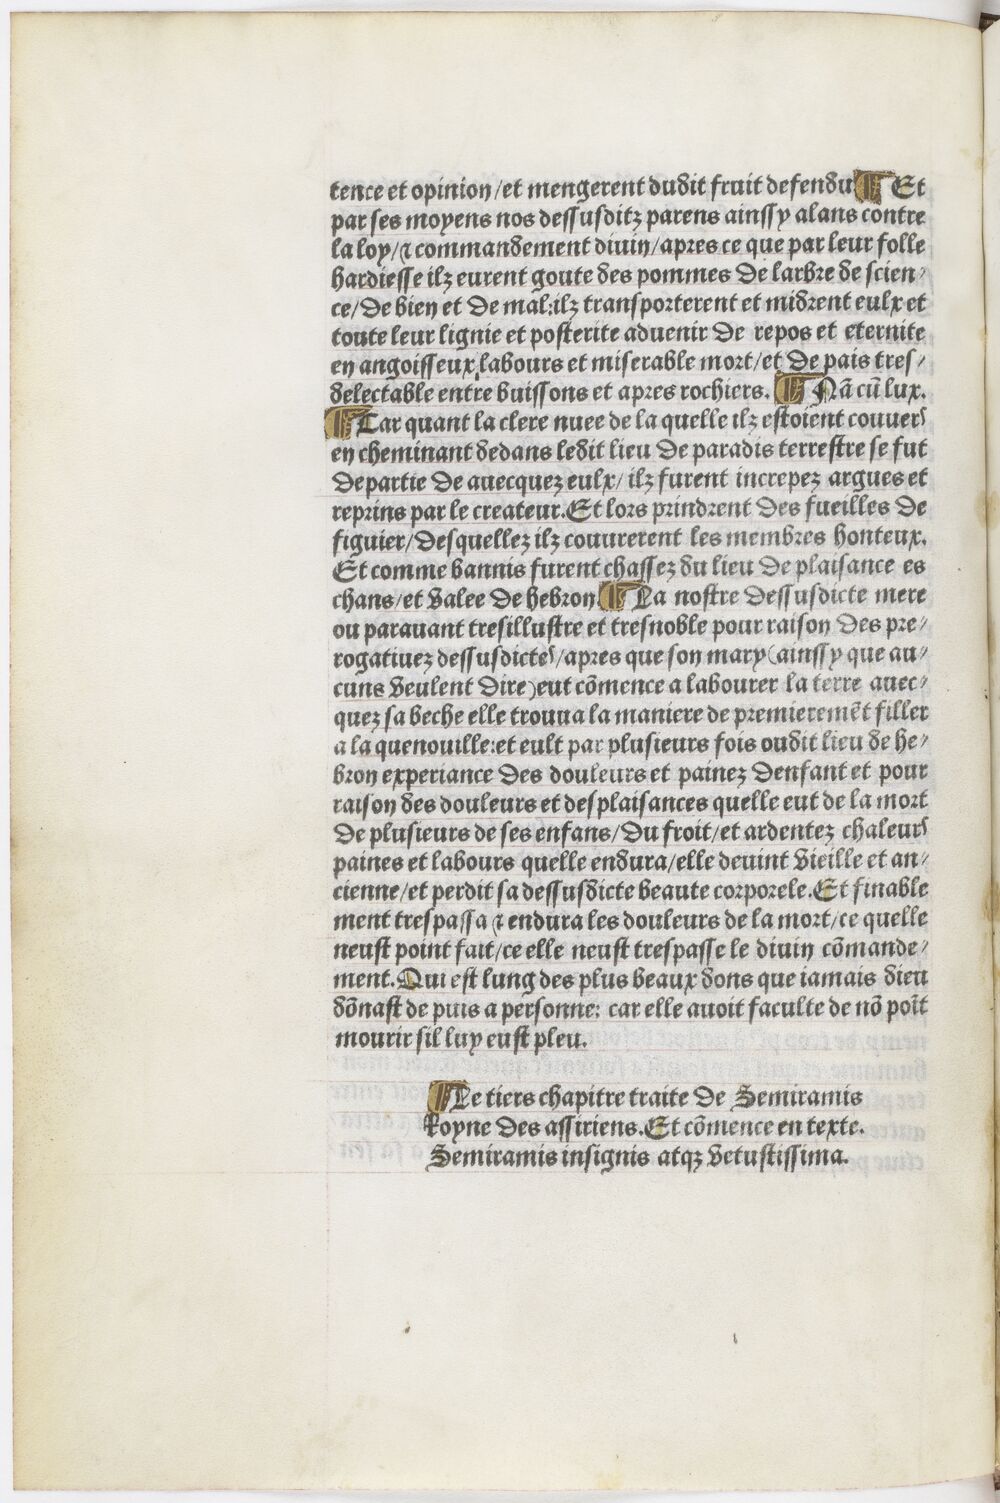 tence et opinion/et mengerent dudit fruit defendu ¶ Et
par ses moyens nos dessusditz parens ainssy alans contre
la loy/⁊ commandement diuin/apres ce que par leur folle
hardiesse ilz eurent goute des pommes de larbre de scien/
ce/de bien et de mal:ilz transporterent et midrent eulx et
toute leur lignie et posterite aduenir de repos et eternite
en angoisseux labours et miserable mort/et de pais tres/
delectable entre buissons et apres rochiers. ¶ Nā cū lux.
¶ Car quant la clere nuee de la quelle ilz estoient couuers
en cheminant dedans ledit lieu de paradis terrestre se fut
departie de auecquez eulx/ ilz furent increpez argues et
reprins par le createur.Et lors prindrent des fueilles de
figuier/desquellez ilz couurerent les membres honteux.
Et comme bannis furent chassez du lieu de plaisance es
chans/et valee de hebron. ¶ La nostre dessusdicte mere
ou parauant tresillustre et tresnoble pour raison des pre/
rogatiuez dessusdictes/apres que son mary (ainssy que au/
cuns veulent dire) eut cōmence a labourer la terre auec/
quez sa beche elle trouua la maniere de premieremēt filler
a la quenouille:et eult par plusieurs fois oudit lieu de he/
bron experiance des douleurs et painez denfant et pour
raison des douleurs et desplaisances quelle eut de la mort
de plusieurs de ses enfans/du froit/et ardentez chaleurs
paines et labours quelle endura/elle deuint vieille et an/
cienne/et perdit sa dessusdicte beaute corporele.Et finable
ment trespassa ⁊ endura les douleurs de la mort/ce quelle
neust point fait/ce elle neust trespasse le diuin cōmande/
ment.Qui est lung des plus beaux dons que iamais dieu
dōnast de puis a personne: car elle auoit faculte de nō poīt
mourir sil luy eust pleu.
¶ Le tiers chapitre traite de Semiramis
Royne des assiriens.Et cōmence en texte.
Semiramis insignis atqꝫ vetustissima.